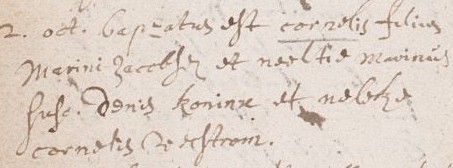 2. oct. baptatus est cornelis filius
Marini Jacobsz et neeltie Marinus
susc. Denis koninx et nelekje
cornelis